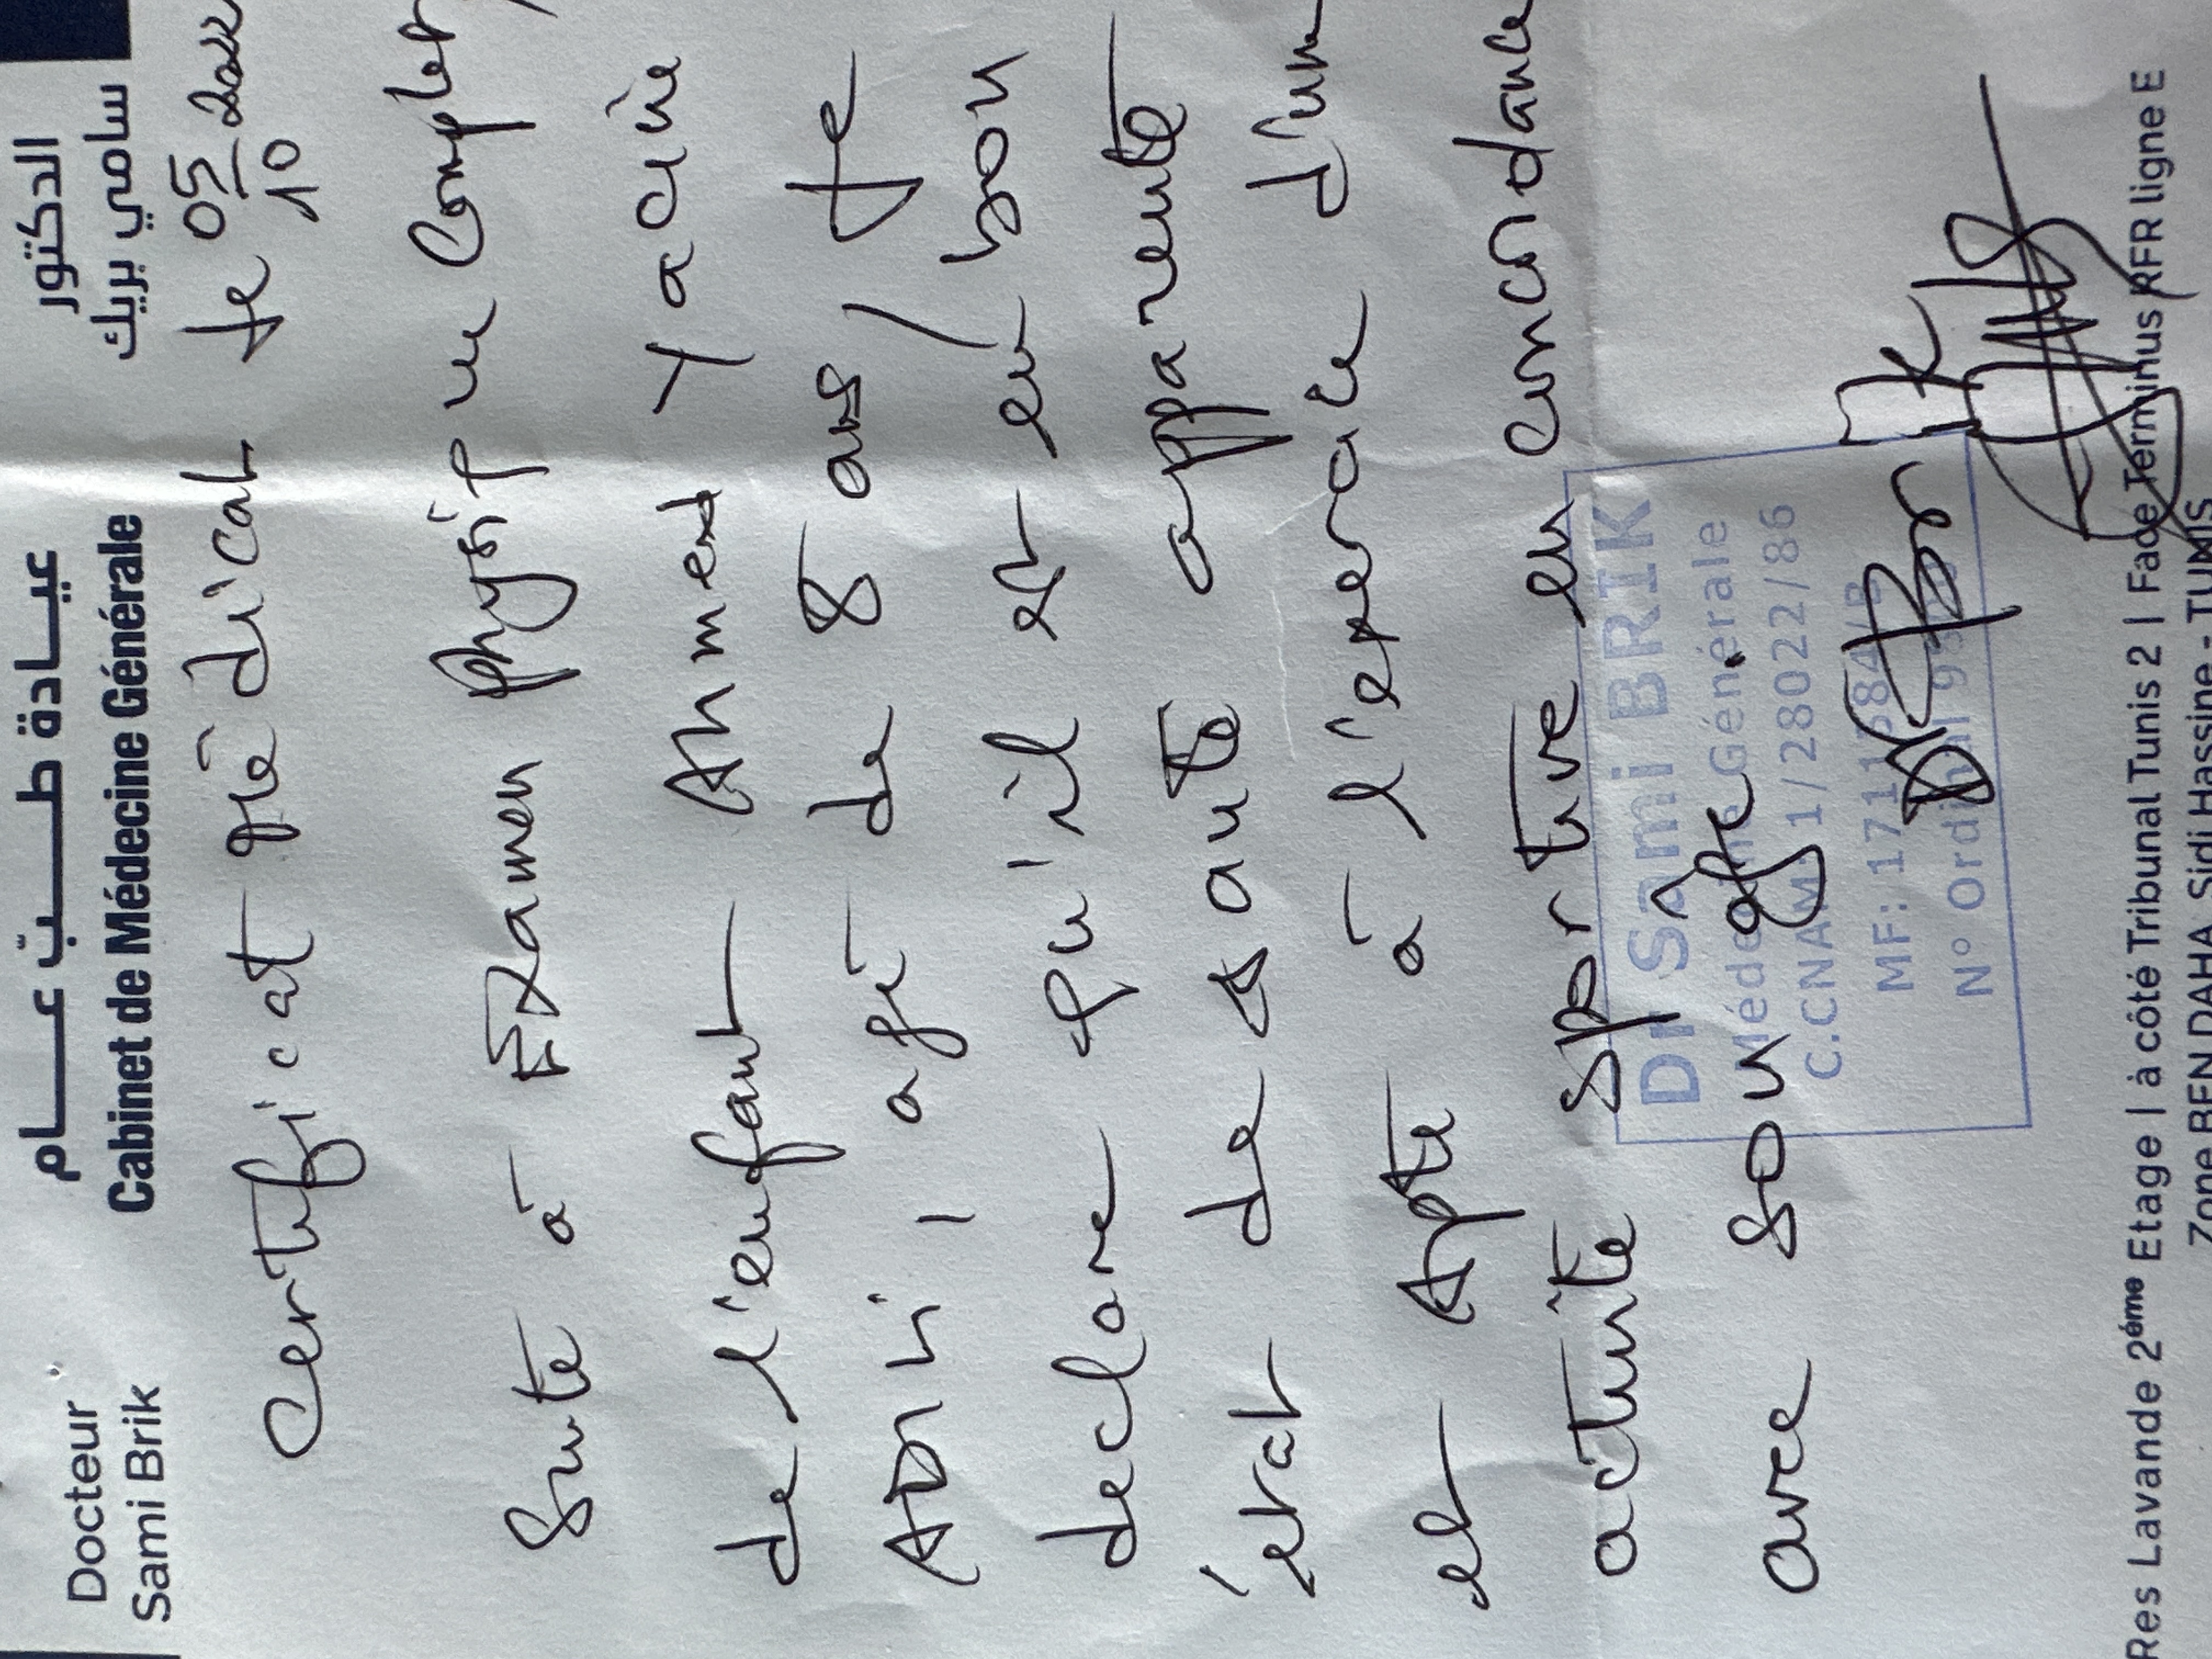 عيادة طب عام
Cabinet de Médecine Générale
Docteur
Sami Brik
الدكتور
سامي بريك
Certificat médical le 05
10
Suite à Examen physique Complet
de l'enfant Ahmed Yacine
âgé de 8 ans, je
declare qu'il est en bon
état de santé apparente
et Apte à l'exercice d'une
activité sportive en concordance
avec son âge.
Dr Brik
Dr Sami BRIK
Médecine Générale
C.CNAM 1/28022/86
MF:
N° Ordinal
Res Lavande 2ème Etage | à côté Tribunal Tunis 2 | Face Terminus RFR ligne E
Zone BEN DAHA Sidi Hassine - TUNIS